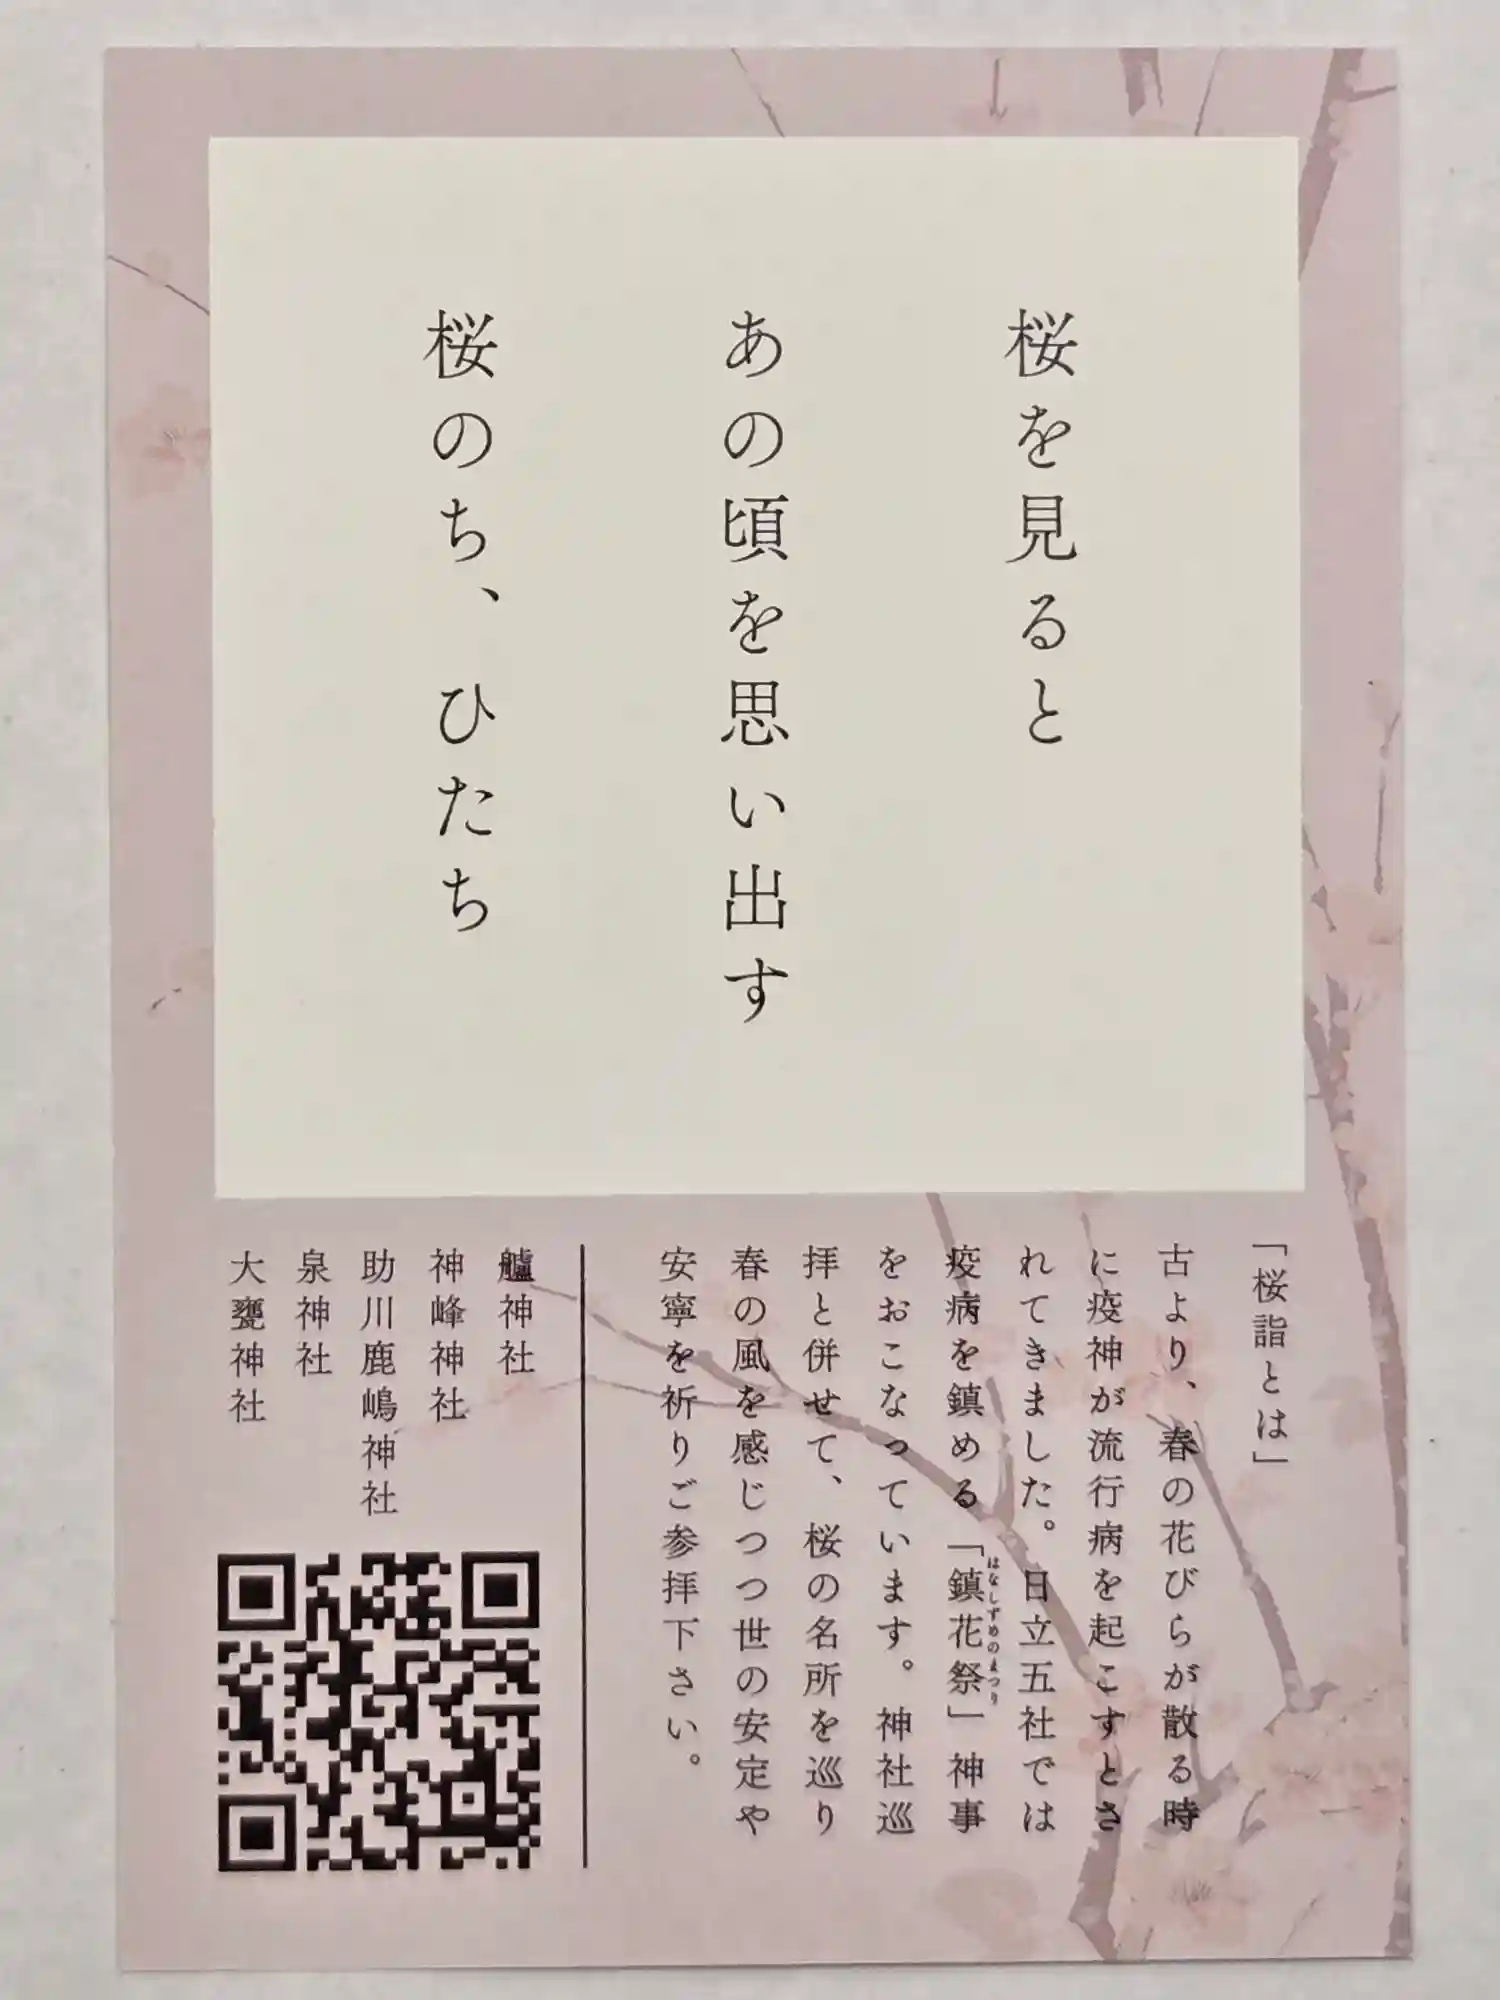 桜を見ると
あの頃を思い出す
桜のち、ひたち
「桜詣とは」
古より、春の花びらが散る時
に疫神が流行病を起こすとさ
れてきました。日立五社では
疫病を鎮める「鎮花祭」神事
はなしずめのまつり
をおこなっています。神社巡
拝と併せて、桜の名所を巡り
春の風を感じつつ世の安定や
安寧を祈りご参拝下さい。
艫神社
神峰神社
助川鹿嶋神社
泉神社
大甕神社